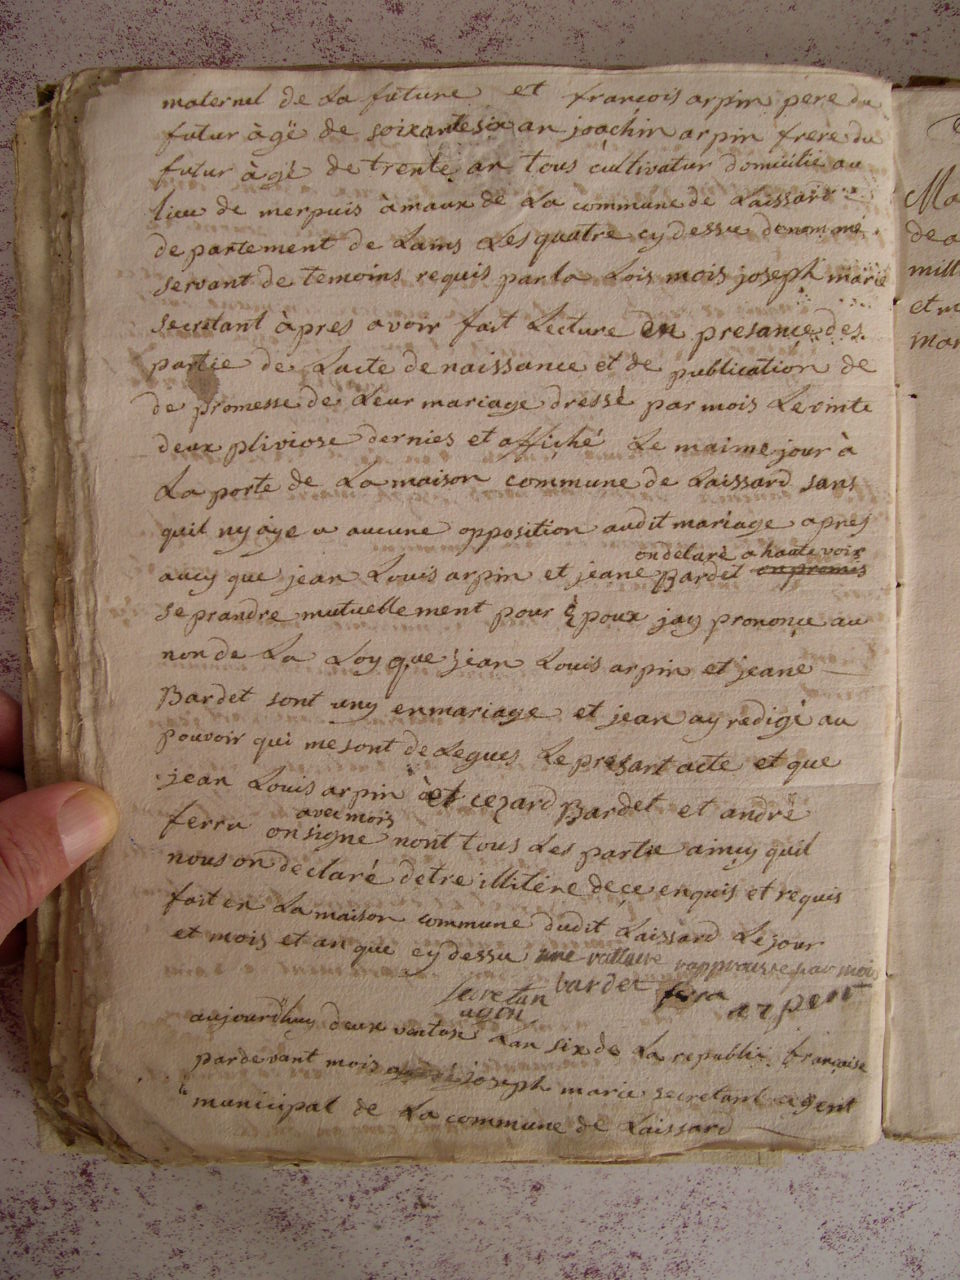 maternel de La future et francois arpin pere du
futur àgë de soixantesix an joachin arpin frere du
futur àgé de trente an tous cultivatur domicilié au
lieu de merpuis àmaux de La commune de Laissard
de partement de Lains Les quatre cy dessu denommé
servant de temoins requis par la Lois mois joseph marie
secretant àpres avoir fait Lecture en presance des
partie de Lacte de naissance et de publication de
de promesse de Leur mariage dressé par mois Levinte
deux pliviose dernies et affiché Le maime jour à
La porte de La maison commune de Laissard sans
quil ny àye u aucune opposition audit mariage apres
on declaré a haute voix
aucy que jean Louis arpin et jeane Bardet on promis
se prandre mutuellement pour époux jay prononce au
non de La Loy que jean Louis arpin et jeane
Bardet sont uny en mariage et jean ay redigé au
pouvoir qui me sont de Legues Le presart acte et que
jean Louis arpin et cezard Bardet et andre
avec mois
ferra on signe nont tous Les partie aincy quil
nous on declaré detre illitére de ce enquis et requis
fait en La maison commune dudit Laissard Le jour
et mois et an que cy dessu une rature rapprouvée par mois
secretan bardet ferra arpent
agent
aujourdhuy deux ventose Lan six de La republi française
pardevant mois joseph marie secretant agent
municipal de La commune de Laissard
Ma
de a
mill
et m
mar